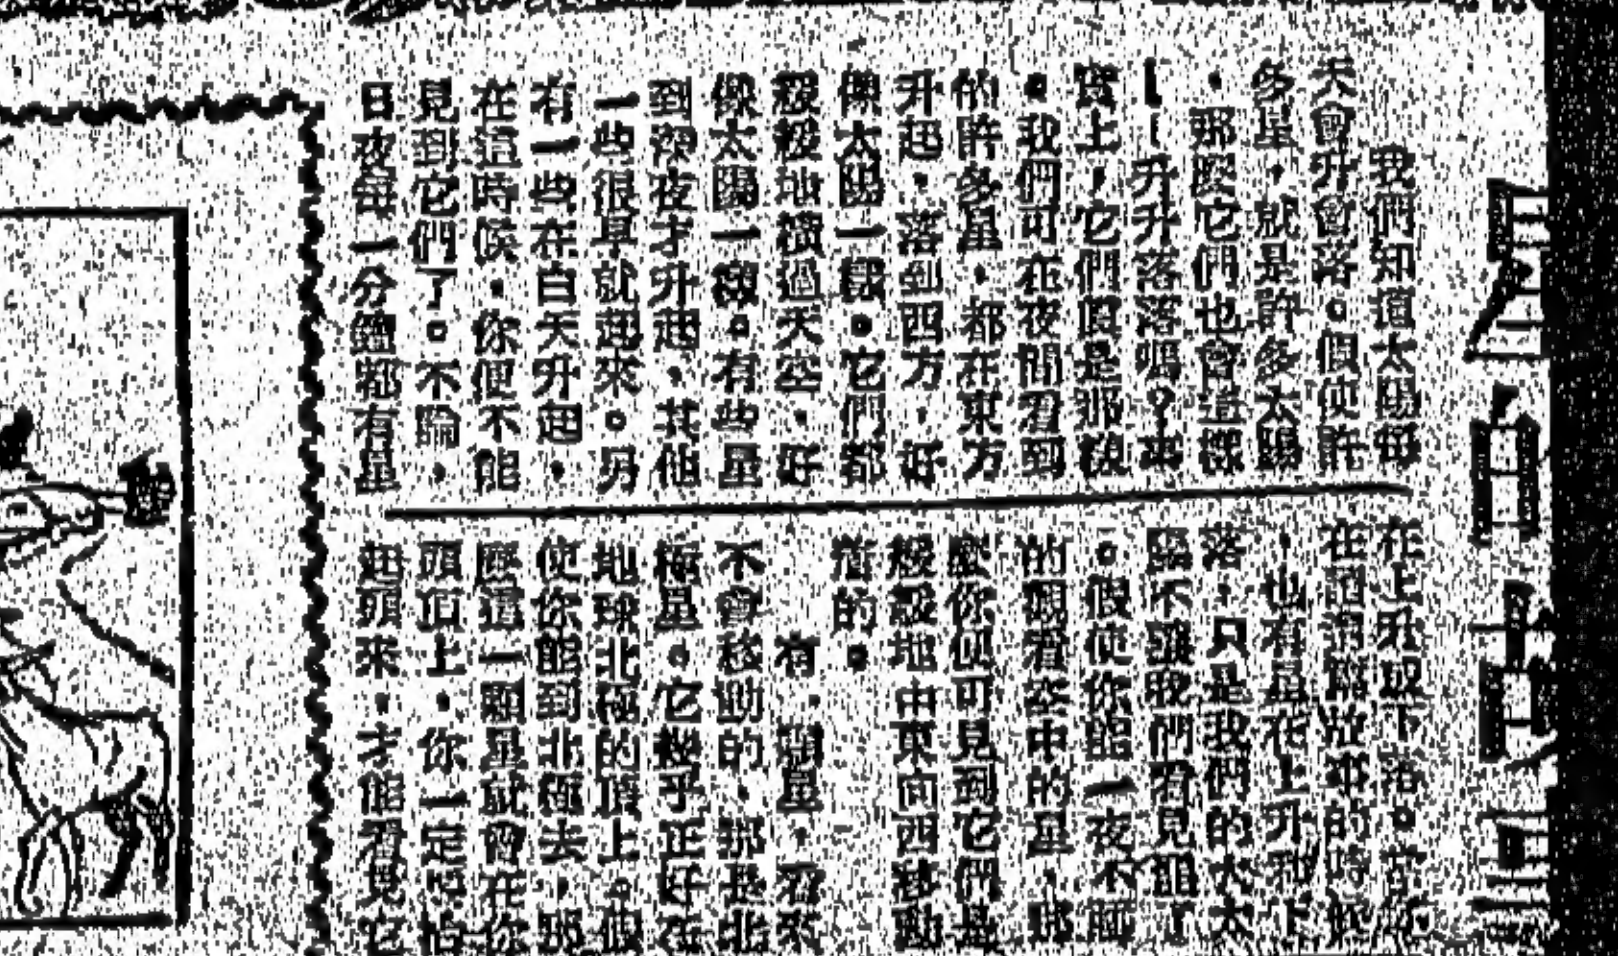 我們知道太陽每
天會升會落。假使許
多星，就是許多太陽
，那麼它們也會這樣
升升落落嗎？事
實上，它們眞是那樣
。我們可在夜間看到
的許多星，都在東方
升起，落到西方，好
像太陽一樣。它們都
緩緩地橫過天空，好
像太陽一樣。有些星
到深夜才升起，其他
一些很早就起來。另
有一些在白天升起，
在這時候，你便不能
見到它們了。不論，
日夜每一分鐘都有星
在上升或下落。當你
在這故事的時候
，也有星在上升和下
落，只是我們的太太
陽不讓我們看見罷了
。假使你能一夜不睡
的觀看空中的星，那
麼你便可見到它們是
緩緩地由東向西移動
着的。
有一顆星，看來
不會移動的，那是北
極星。它幾乎正好在
地球北極的頂上。假
使你能到北極去，那
麼這一顆星就會在你
頭頂上，你一定恐怕
起頭來，才能看見它